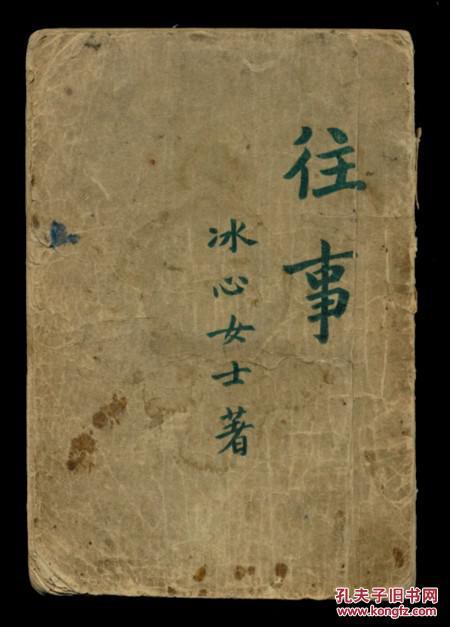 往事
冰心女士著
孔夫子旧书网
www.kongfz.com